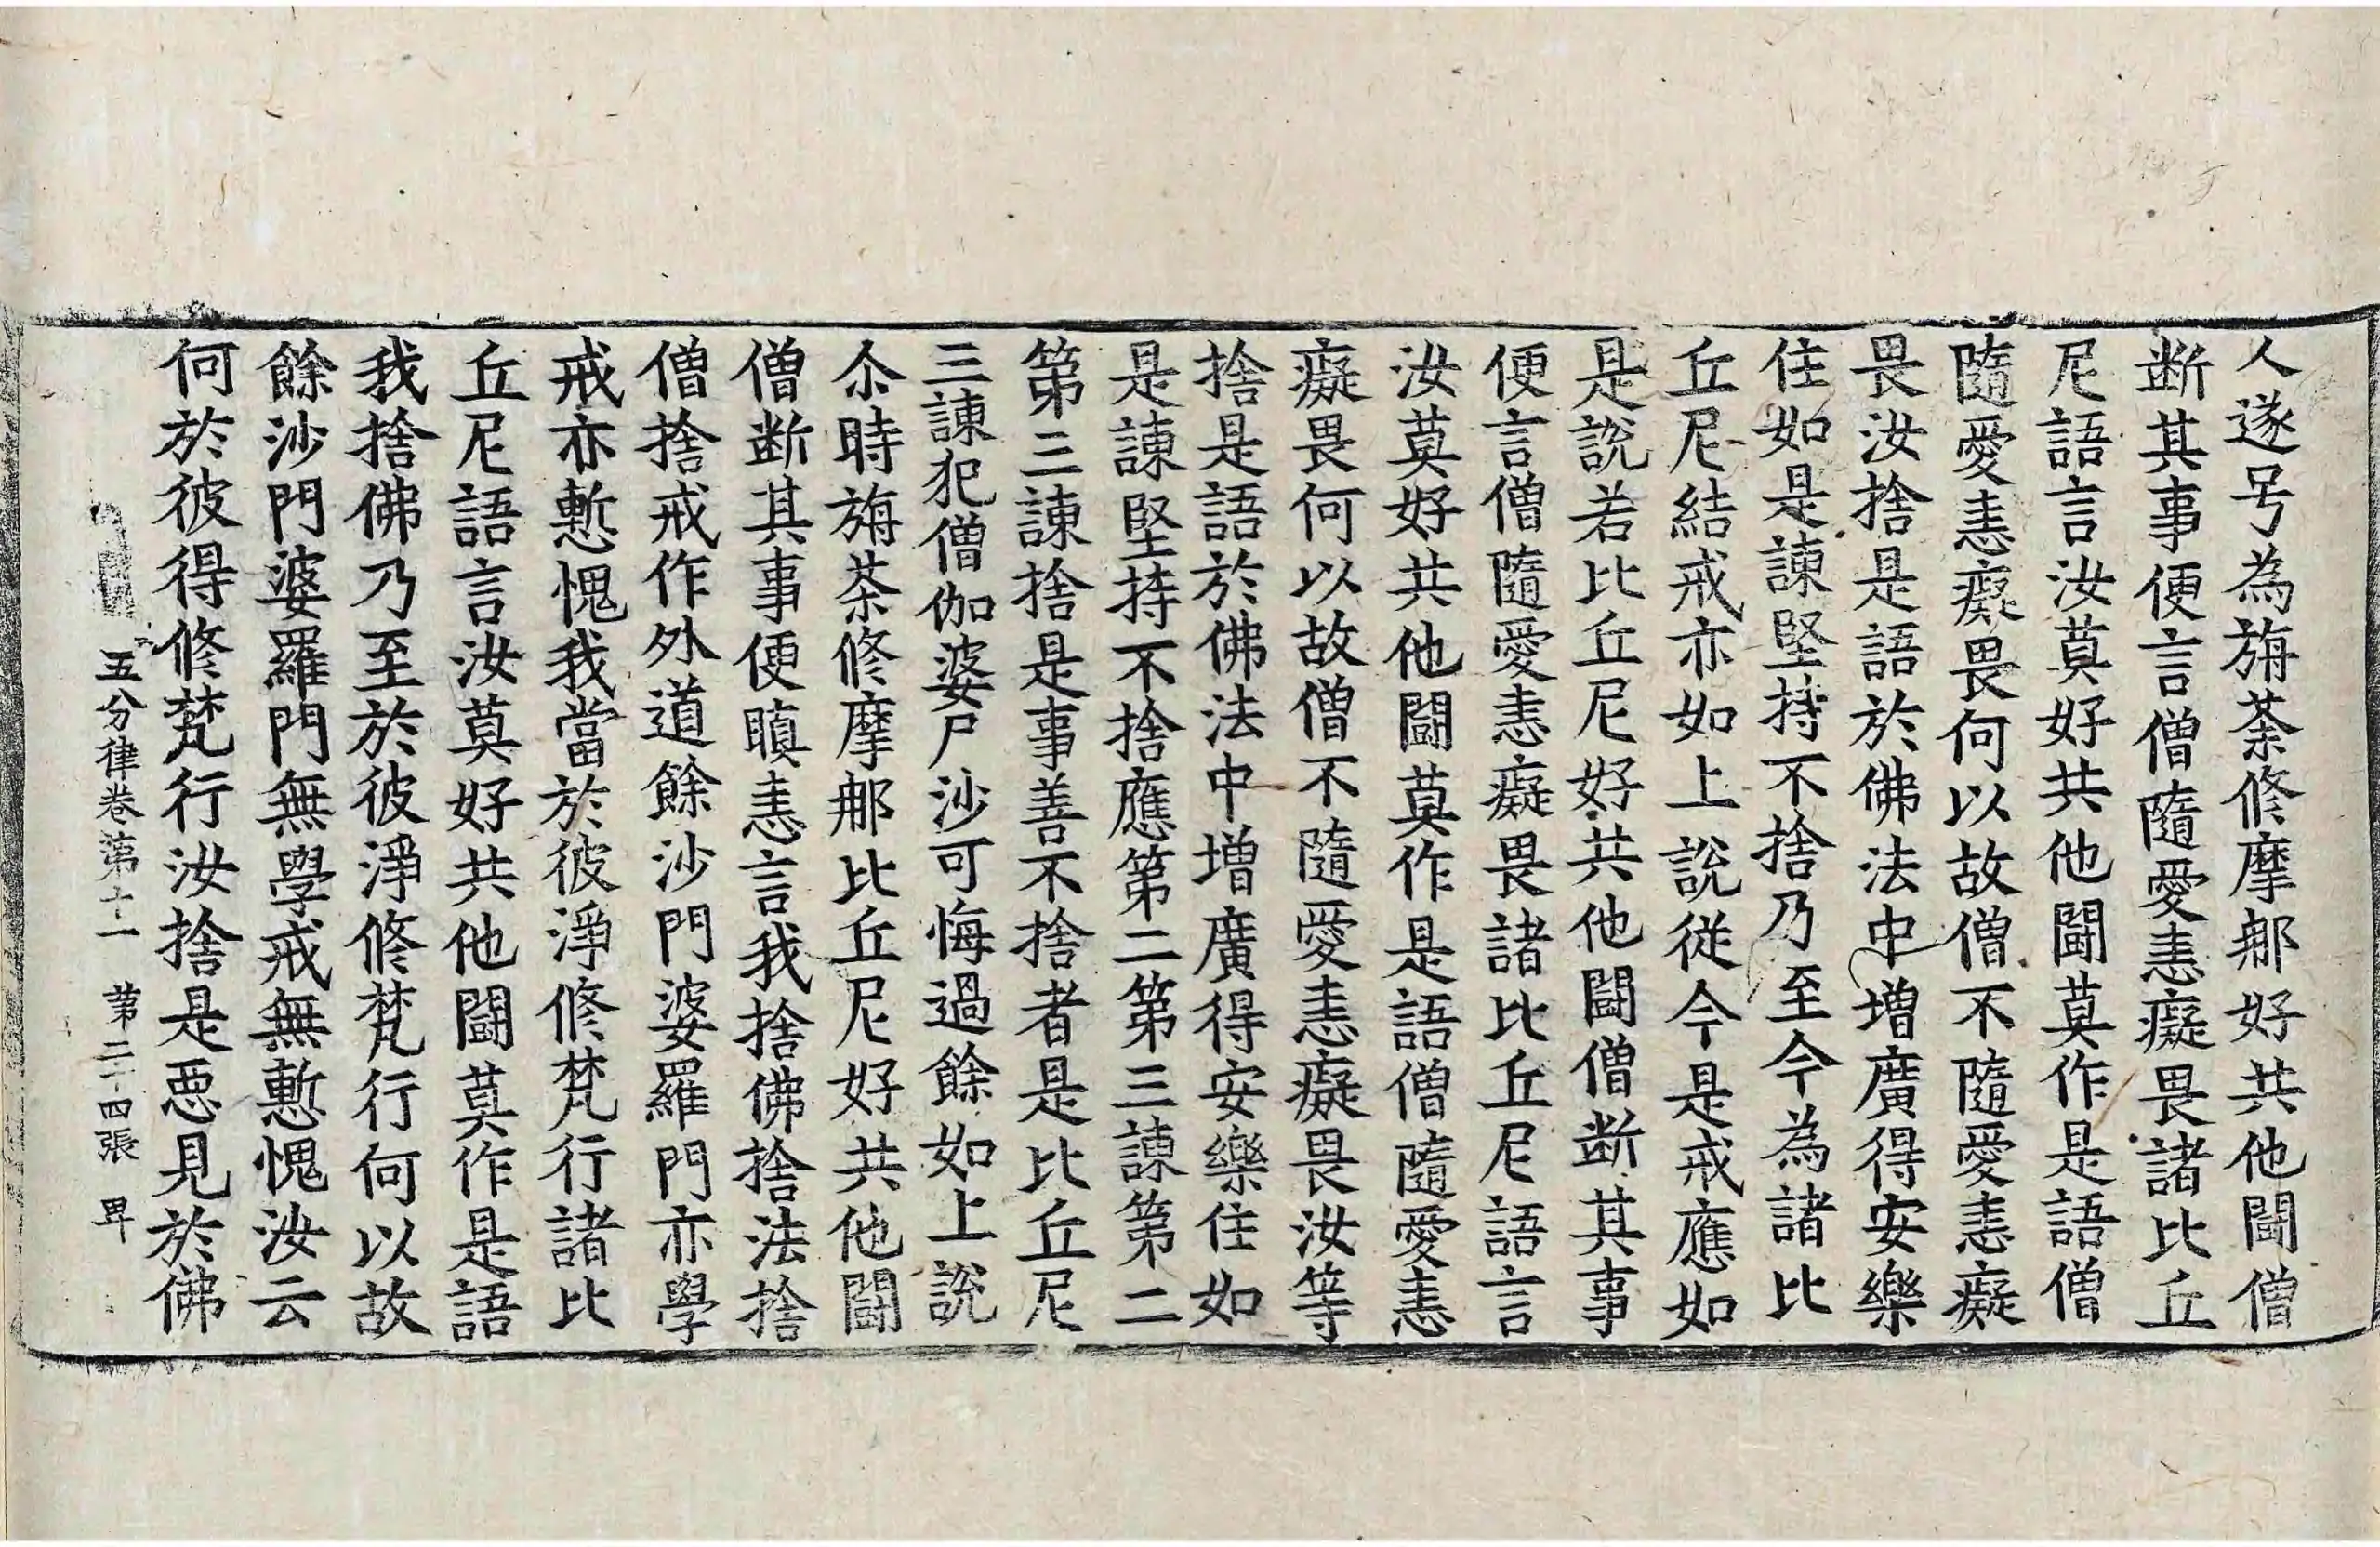 人遂号為旃荼修摩那好共他鬪僧
断其事便言僧隨愛恚癡畏諸比丘
尼語言汝莫好共他鬪莫作是語僧
隨愛恚癡畏何以故僧不隨愛恚癡
畏汝捨是語於佛法中增廣得安樂
住如是諫堅持不捨乃至今為諸比
丘尼結戒亦如上說從今是戒應如
是說若比丘尼好共他鬪僧断其事
便言僧隨愛恚癡畏諸比丘尼語言
汝莫好共他鬪莫作是語僧隨愛恚
癡畏何以故僧不隨愛恚癡畏汝等
捨是語於佛法中增廣得安樂住如
是諫堅持不捨應第二第三諫第二
第三諫捨是事善不捨者是比丘尼
三諫犯僧伽婆尸沙可悔過餘如上說
尒時旃荼修摩那比丘尼好共他鬪
僧断其事便瞋恚言我捨佛捨法捨
僧捨戒作外道餘沙門婆羅門亦學
戒亦慙愧我當於彼淨修梵行諸比
丘尼語言汝莫好共他鬪莫作是語
我捨佛乃至於彼淨修梵行何以故
餘沙門婆羅門無學戒無慙愧汝云
何於彼得修梵行汝捨是惡見於佛
五分律卷第十一 第二十四張 卑